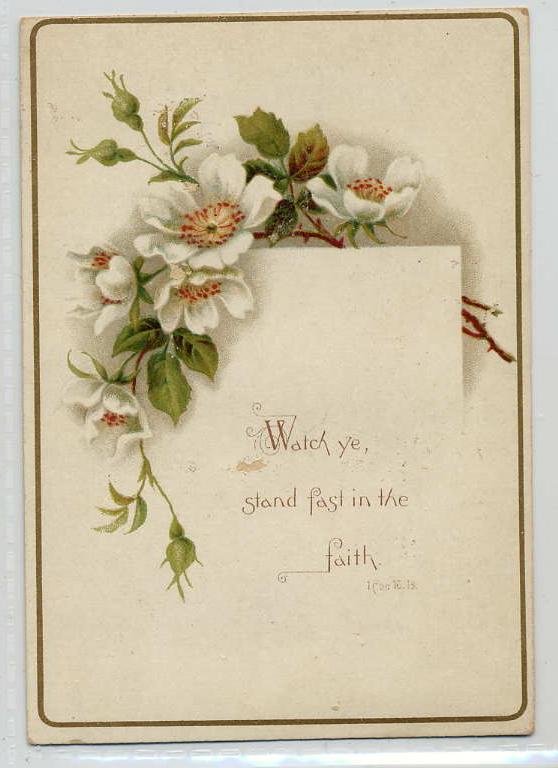 Watch ye,
stand fast in the
faith.
1 Cor. 16. 13.